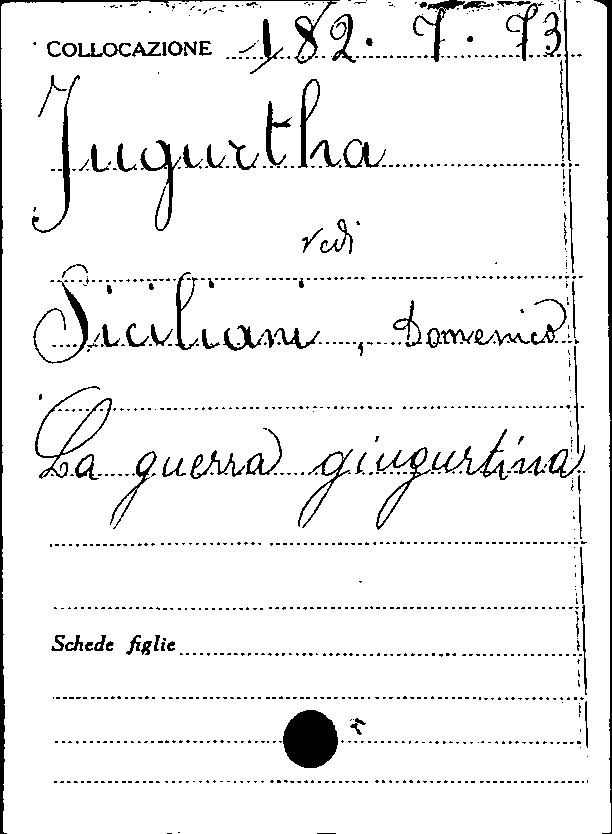 COLLOCAZIONE 182. 7. 73
Jugurtha
vedi
Siciliani, Domenico
La guerra giugurtina
Schede figlie